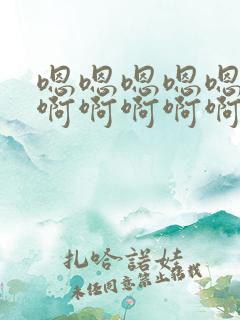 嗯嗯嗯嗯嗯
啊啊啊啊啊
扎哈諾娃
未经同意禁止转载